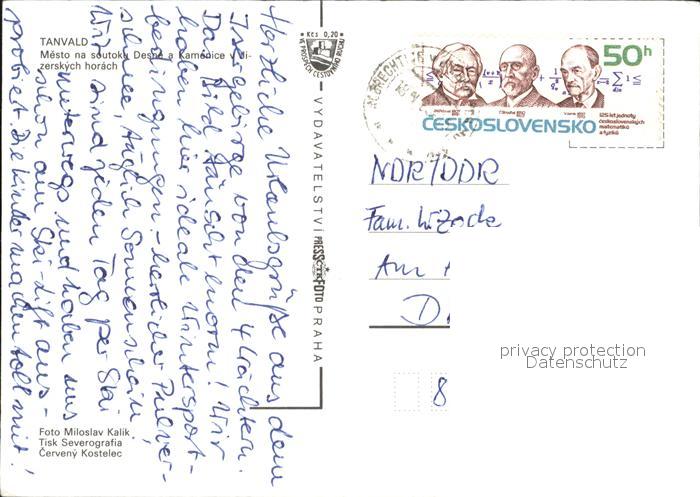 TANVALD
Město na soutoku Desné a Kamenice v Ji-
zerských horách
Kčs 0,20
VE PROSPĚCH CESTOVNÍHO RUCHU
Herzliche Urlaubsgrüße aus dem
Isergebirge von den 4
Das Bild täuscht enorm! Wir
haben hier ideale Wintersport-
bedingungen - herrlicher Pulver-
schnee, täglich Sonnenschein.
Wir sind jeden Tag per Ski
unterwegs und haben uns
schon am Ski-Lift aus-
probiert. Die Kinder machen toll mit!
Foto Miloslav Kalík
Tisk Severografia
Červený Kostelec
VYDAVATELSTVÍ PRESSFOTO PRAHA
50h
ČESKOSLOVENSKO
125 let jednoty
československých
matematiků
a fyziků
NDR/DDR
Fam.
Am
D
8
privacy protection
Datenschutz